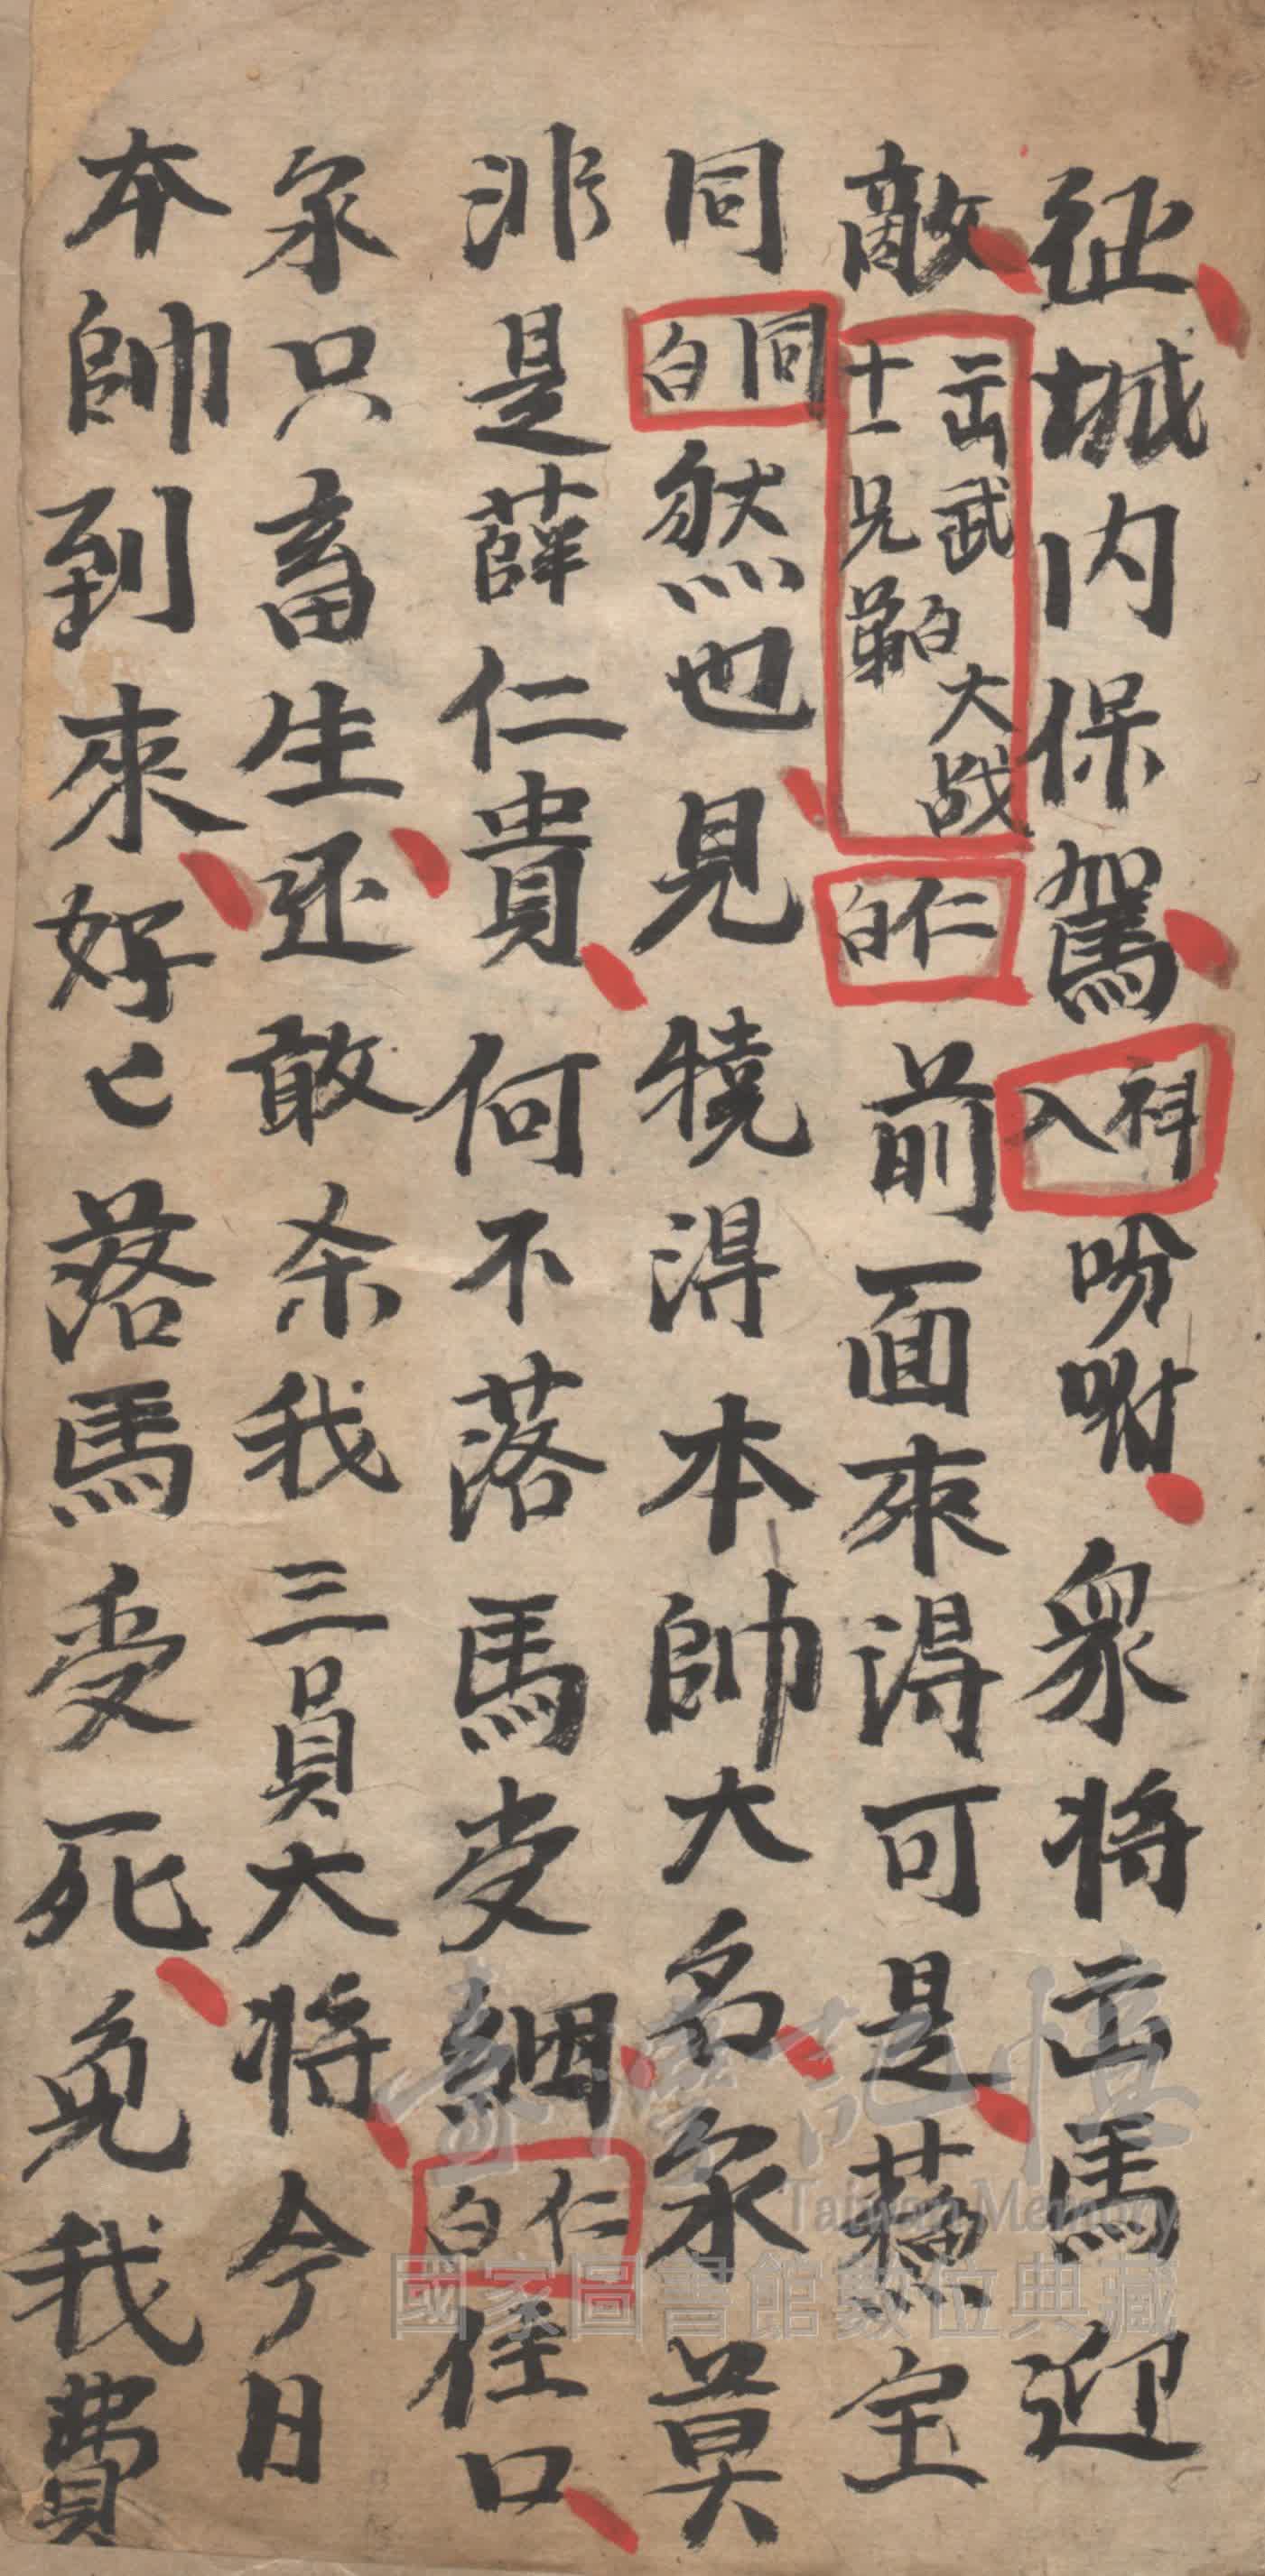 征城内保駕科入吩咐衆将出馬迎
敵出武白大战十一兄弟白仁白前面來得可是蘇宝
同同白然也見犞得本帥大名汆莫
非是薛仁貴何不落馬受綑仁白住口
汆只畜生还敢杀我三員大将今日
本帥到來好匕落馬受死免我費
臺灣記憶
Taiwan Memory
國家圖書館數位典藏